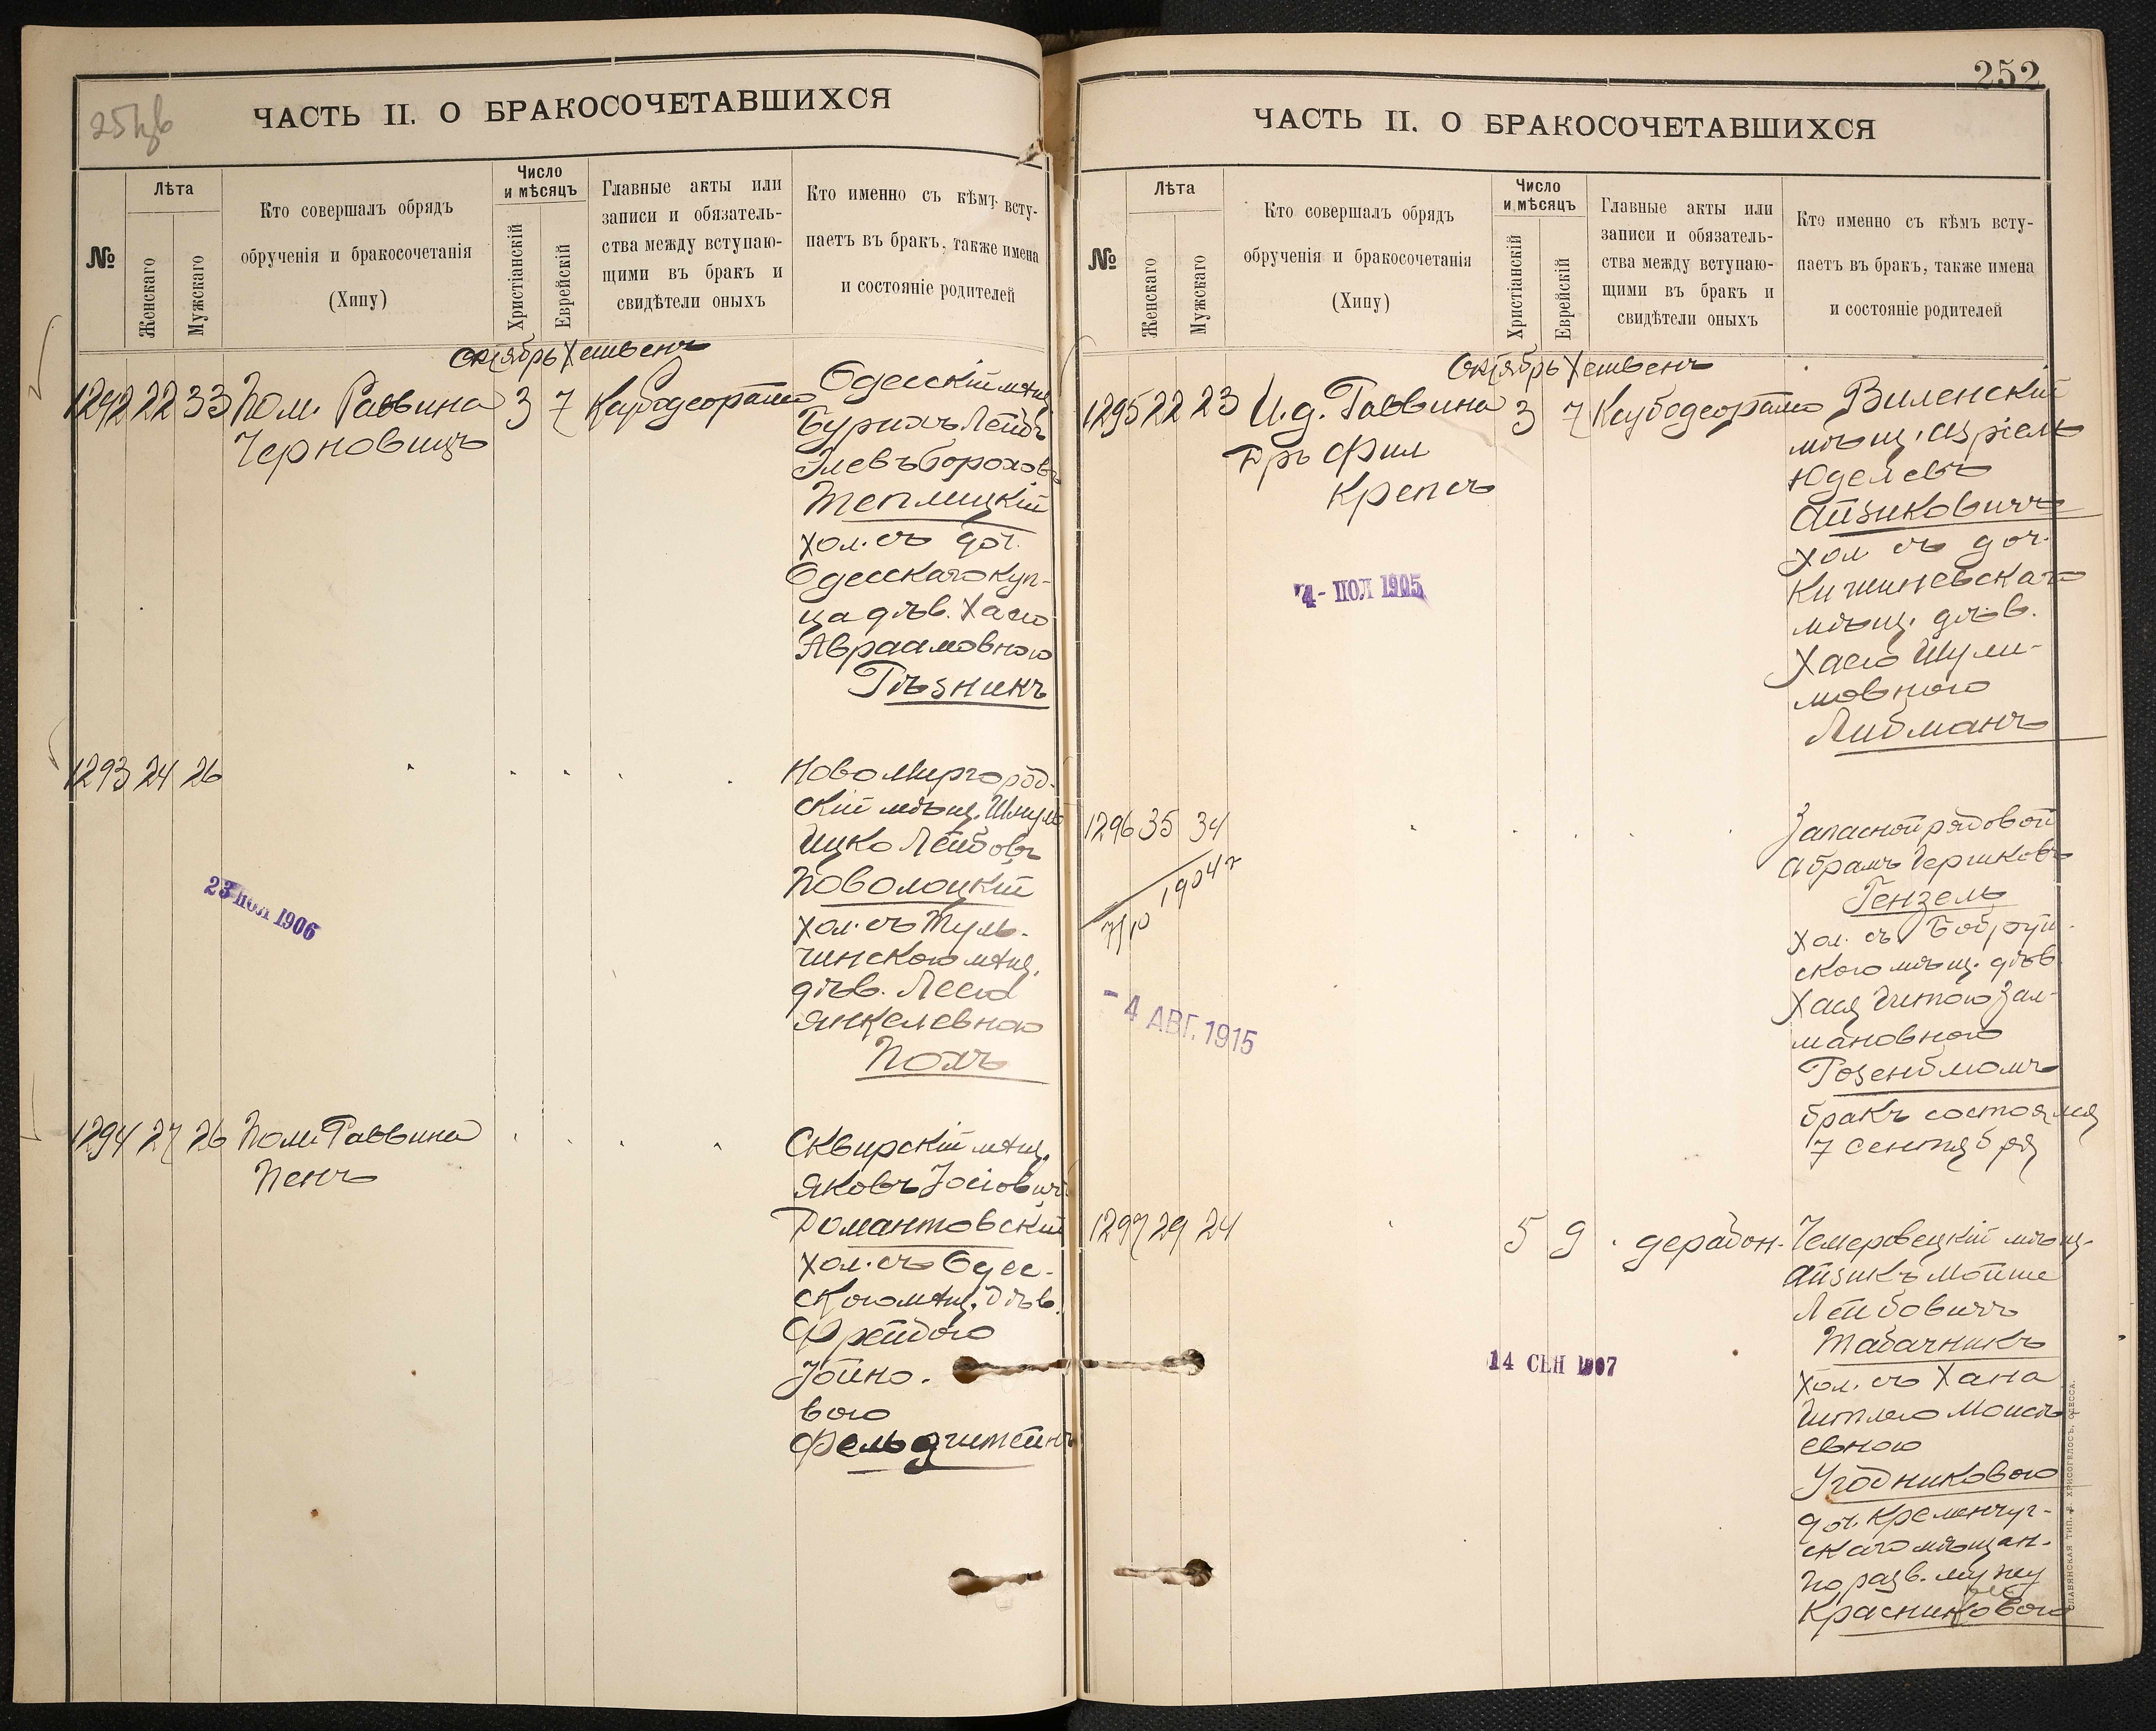 25
ЧАСТЬ II. О БРАКОСОЧЕТАВШИХСЯ
№
Лѣта
Женскаго
Мужскаго
Кто совершалъ обрядъ
обрученія и бракосочетанія
(Хипу)
Число
и мѣсяцъ
Христіанскій
Еврейскій
Главные акты или
записи и обязатель-
ства между вступаю-
щими въ бракъ и
свидѣтели оныхъ
Кто именно съ кѣмъ всту-
паетъ въ бракъ, также имена
и состояніе родителей
Октябрь Хешвенъ
1292 22 33 Пом. Раввина
Черновицъ
3 7
Одесскій мѣщ.
Лейбъ
Теплицкій
хол. съ доч.
Одесскаго куп-
ца дѣв. Хаею
Авраамовною
Рѣзникъ
1293 24 26
Новомиргород-
скій мѣщ. Шмуль
Ицко Лейбовъ
Поволоцкій
хол. съ Туль-
чинскою мѣщ.
дѣв. Леею
Янкелевною
Полъ
23 ПОЛ 1906
1294 27 26 Пом. Раввина
Пенъ
Сквирскій мѣщ.
Яковъ Іосіовичъ
Домантовскій
хол. съ Одес-
скою мѣщ. дѣв.
Фрейдою
Іойно-
вою
Фельдштейнъ
252
ЧАСТЬ II. О БРАКОСОЧЕТАВШИХСЯ
№
Лѣта
Женскаго
Мужскаго
Кто совершалъ обрядъ
обрученія и бракосочетанія
(Хипу)
Число
и мѣсяцъ
Христіанскій
Еврейскій
Главные акты или
записи и обязатель-
ства между вступаю-
щими въ бракъ и
свидѣтели оныхъ
Кто именно съ кѣмъ всту-
паетъ въ бракъ, также имена
и состояніе родителей
Октябрь Хешвенъ
1295 22 23 И.д. Раввина
Дръ Фил
Крепсъ
3 7
Виленскій
мѣщ. Азріель
Юделевъ
Айзиковичъ
хол съ доч.
Кишиневскаго
мѣщ. дѣв.
Хаею Шули-
мовною
Либманъ
4- ПОЛ 1905
1296 35 34
7/10 1904 г
- 4 АВГ. 1915
Запасной рядовой
Абрамъ Гершковъ
Гензель
хол. съ Бобруй-
скою мѣщ. дѣв
Хая Гитою Зал-
мановною
Розенблюмъ
бракъ состоялся
7 Сентября
1297 29 24
5 9
14 СЕН 1907
Чемеровецкій мѣщ.
Айзикъ Мойше
Лейбовичъ
Табачникъ
хол. съ Хана
Гитлею Моисе-
евною
Угодниковою
доч. Кременчуг-
скаго мѣщан.
по разв. мужу
СЛАВЯНСКАЯ ТИП. Н. ХРИСОГЕЛОСЪ, ОДЕССА.